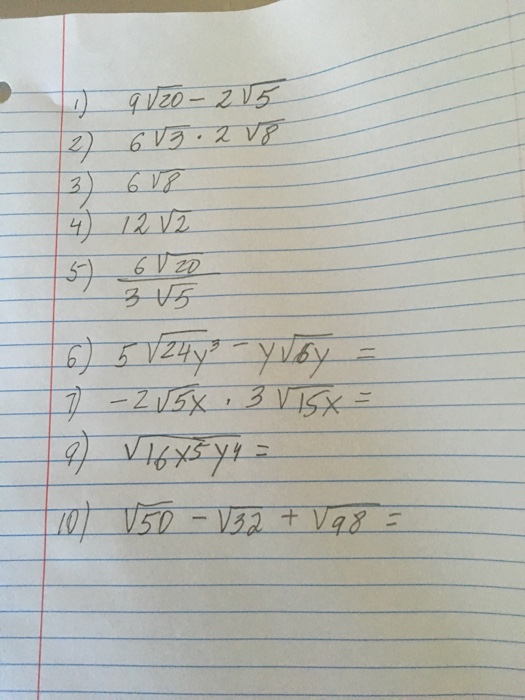 1) 9√20 - 2√5
2) 6√3 · 2√8
3) 6√8
4) 12√2
5) 6√20
3√5
6) 5√24y³ - y√6y =
7) -2√5x · 3√15x =
9) √16x5y4 =
10) √50 - √32 + √98 =